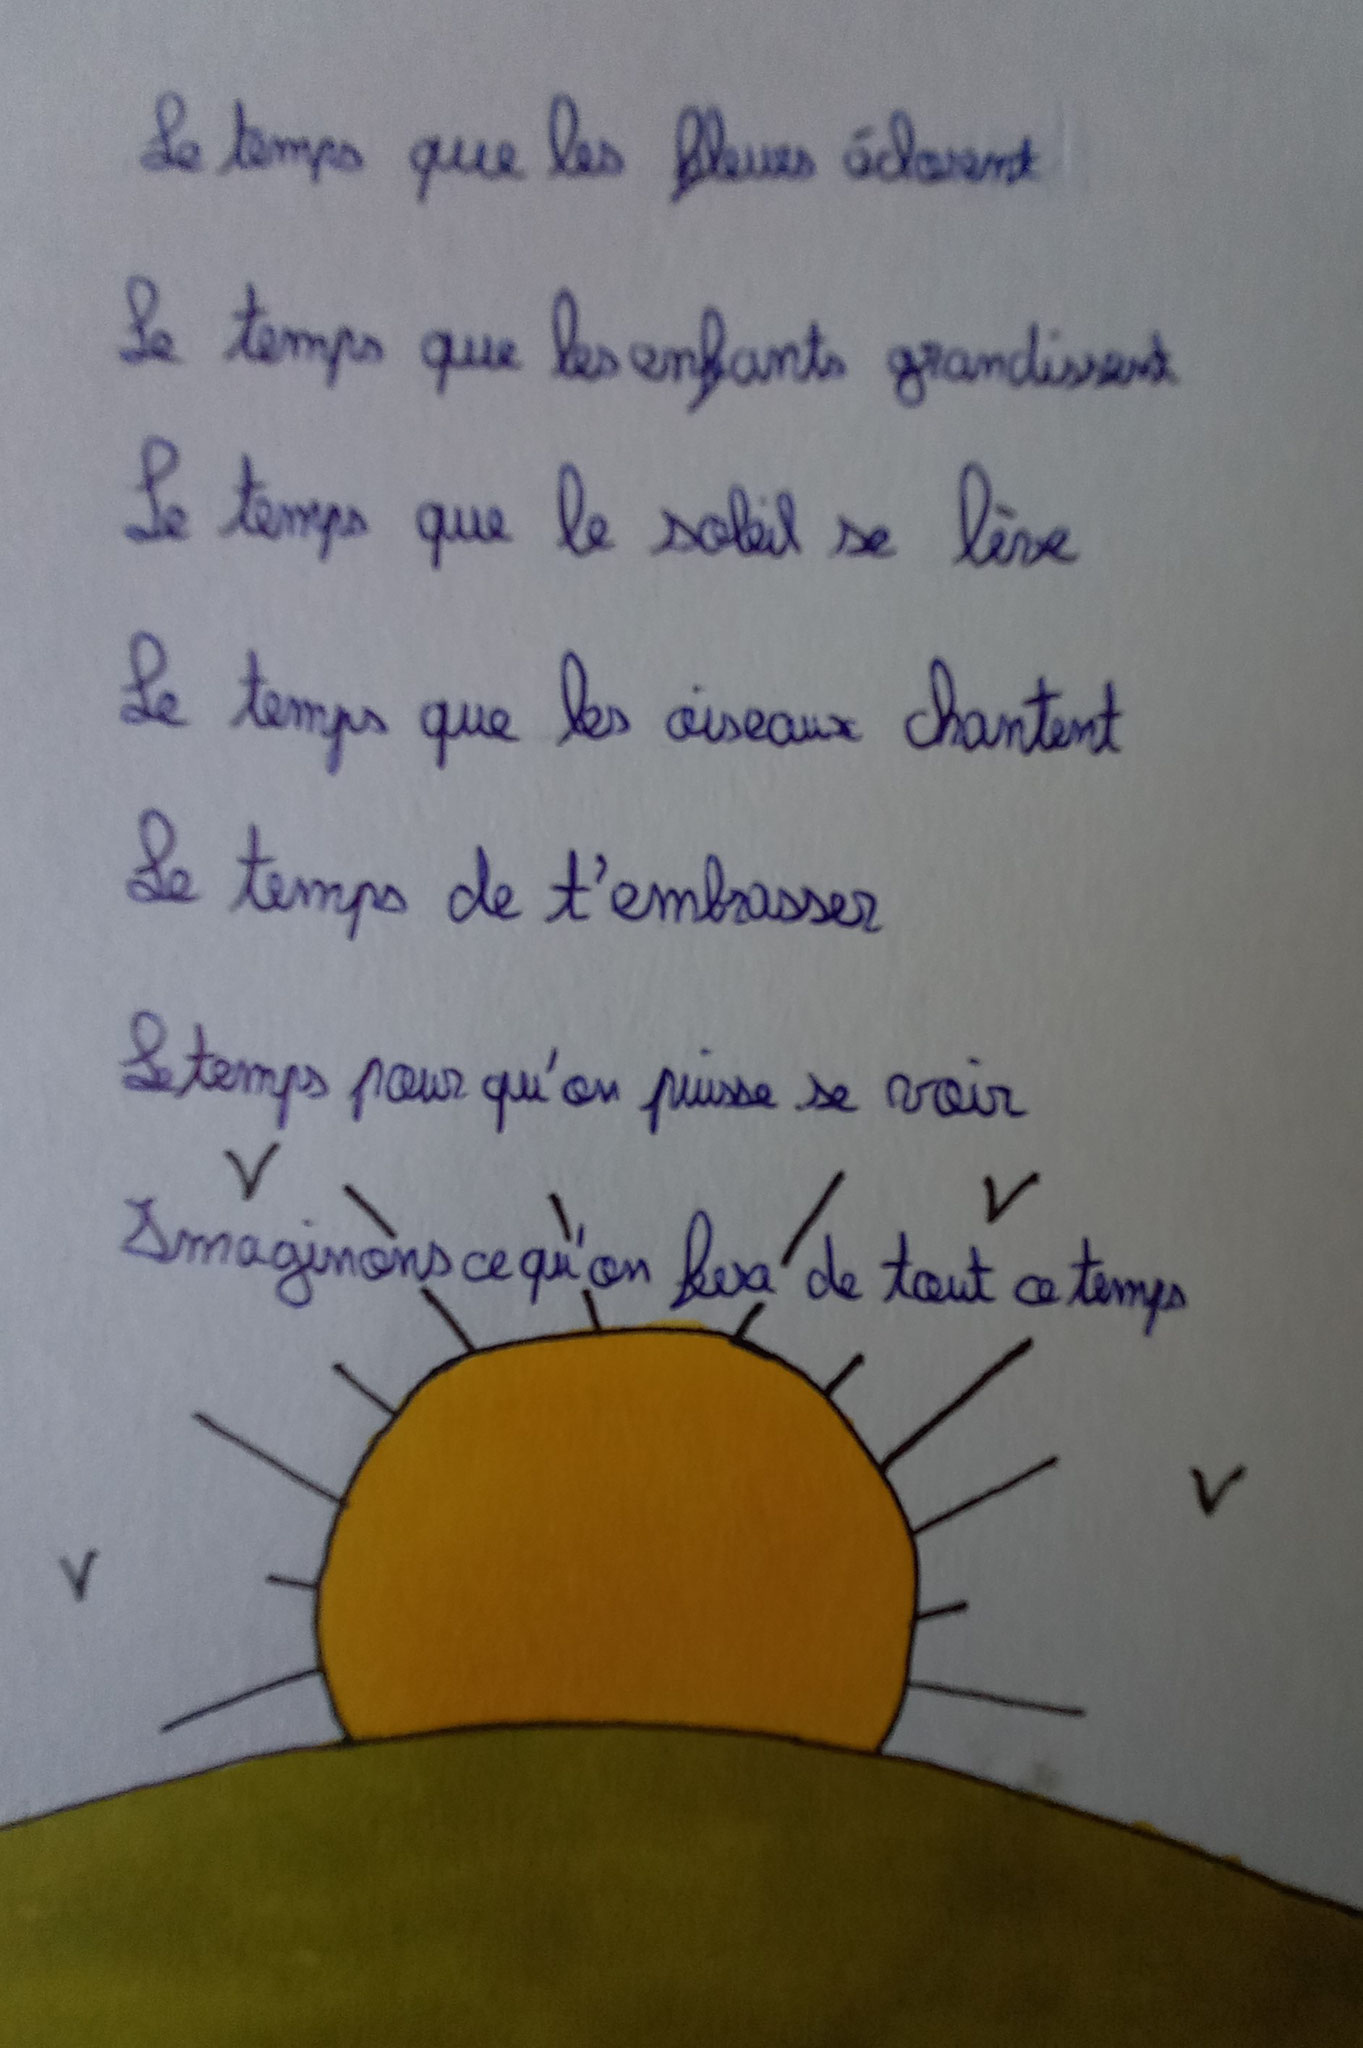 Le temps que les fleurs éclosent
Le temps que les enfants grandissent
Le temps que le soleil se lève
Le temps que les oiseaux chantent
Le temps de t'embrasser
Le temps pour qu'on puisse se voir
Imaginons ce qu'on fera de tout ce temps